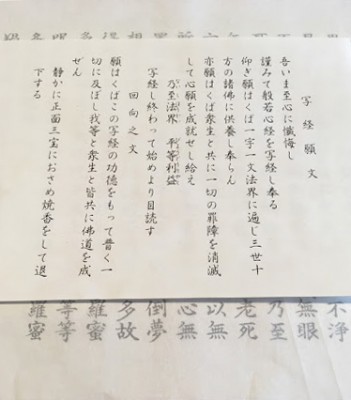 写経願文
吾いま至心に懺悔し
謹みて般若心経を写経し奉る
仰ぎ願はくば一字一文法界に遍じ三世十
方の諸佛に供養し奉らん
亦願はくば衆生と共に一切の罪障を消滅
して心願を成就せし給え
乃至法界 平等利益
写経し終わって始めより目読す
回向之文
願はくばこの写経の功徳をもって普く一
切に及ぼし我等と衆生と皆共に佛道を成
ぜん
静かに正面三宝におさめ焼香をして退
下する
不浄
無眼
乃至
老死
以無
心無
倒夢
多故
羅蜜
等等
羅蜜